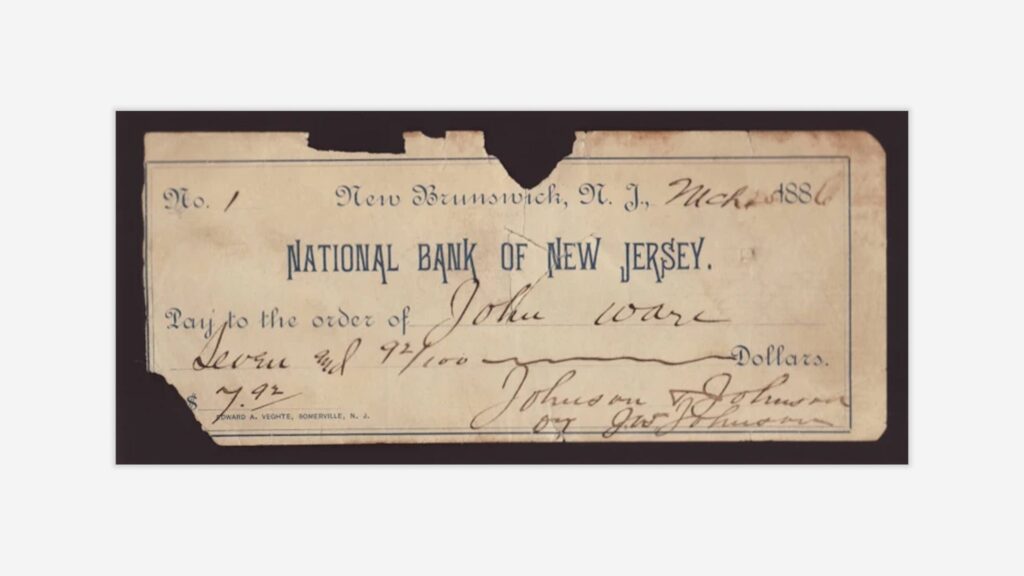 No. 1 New Brunswick, N. J., Mch 1886
NATIONAL BANK OF NEW JERSEY.
Pay to the order of John Ware
Seven and 92/100 Dollars.
$ 7.92 Johnson & Johnson
EDWARD A. VEGHTE, SOMERVILLE, N. J. by J.W. Johnson